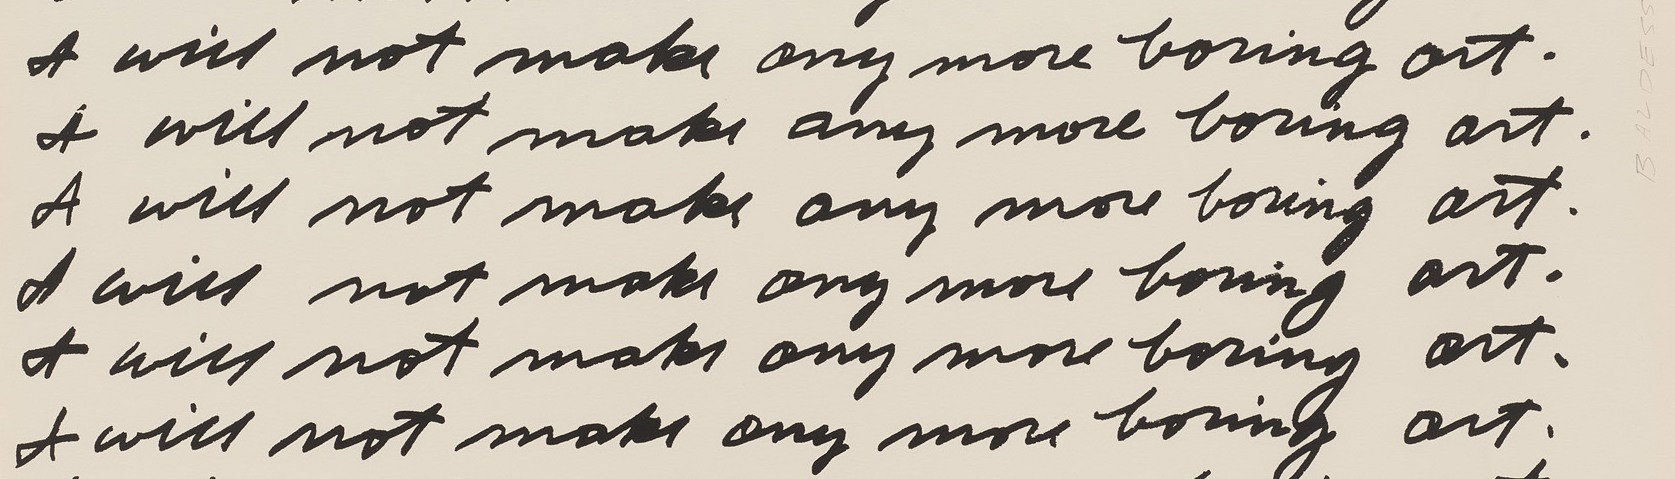 I will not make any more boring art.
I will not make any more boring art.
I will not make any more boring art.
I will not make any more boring art.
I will not make any more boring art.
I will not make any more boring art.